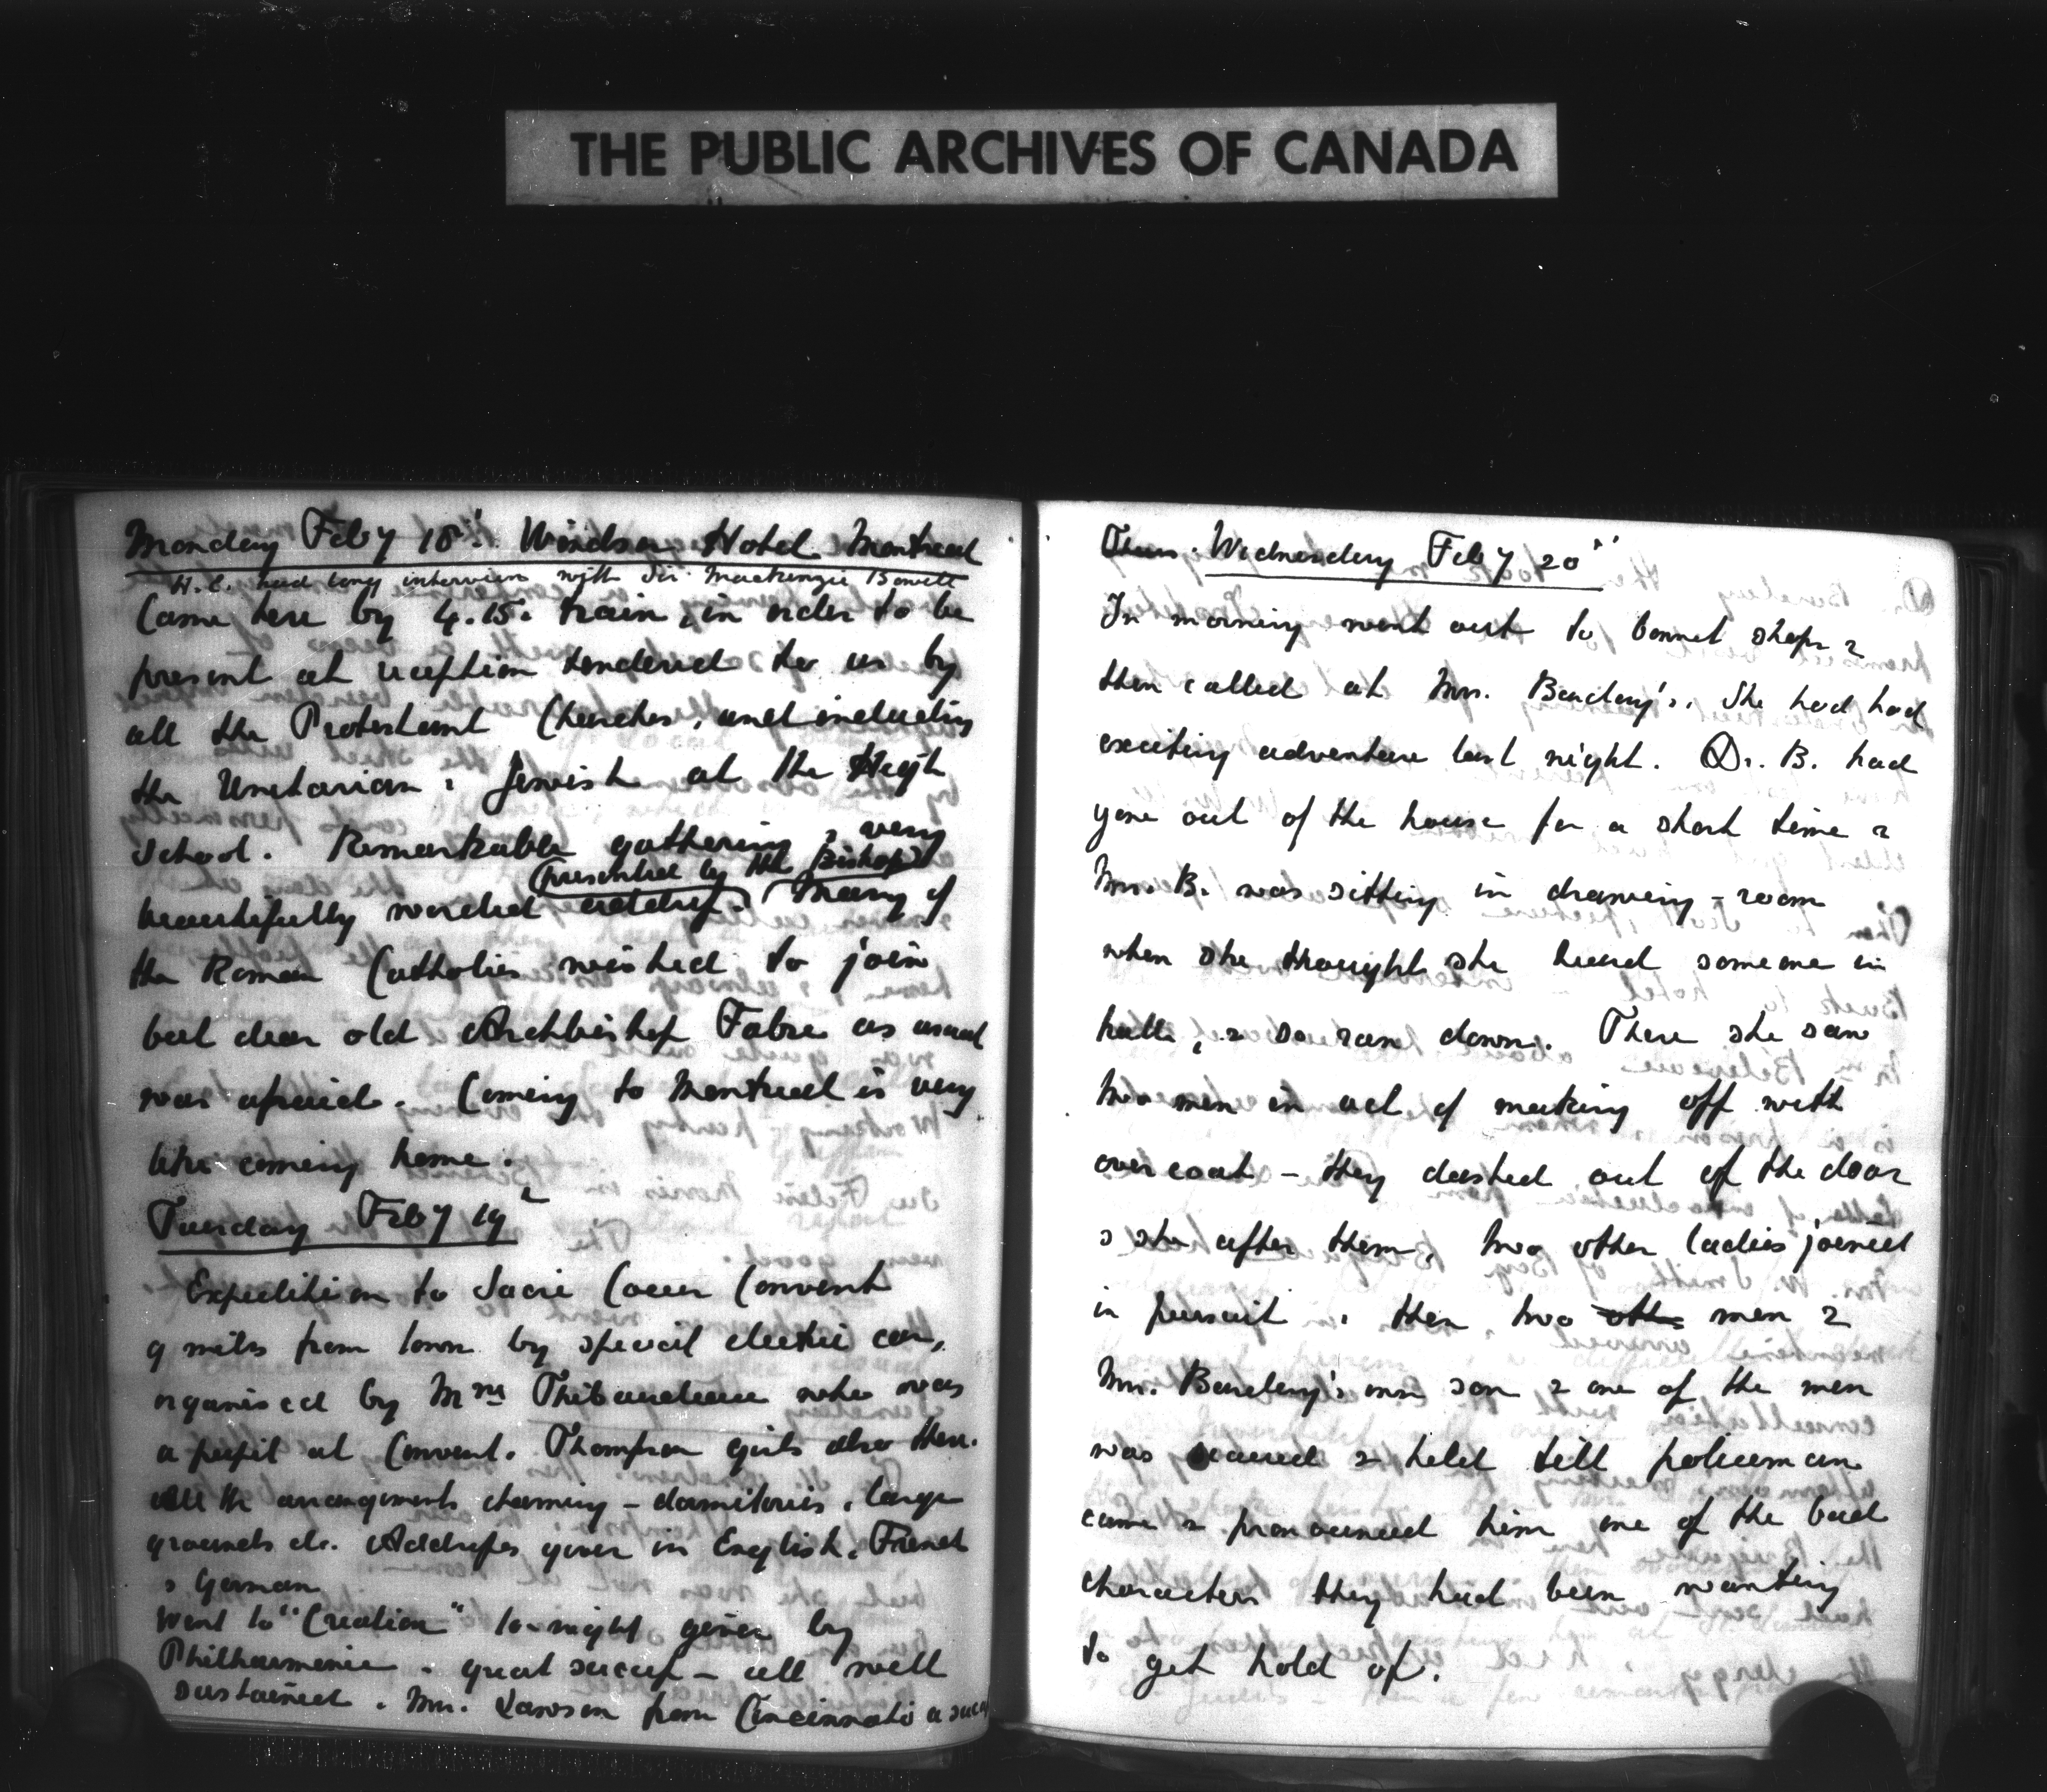 THE PUBLIC ARCHIVES OF CANADA
Monday Feby 18th. Windsor Hotel Montreal
H.E. had long interview with Sir Mackenzie Bowell
Came here by 4.15. train, in order to be
present at reception tendered to us by
all the Protestant Churches, and including
the Unitarian & Jewish at the High
School. Remarkable gathering & very
(presented by the Bishop)
beautifully worded address. Many of
the Roman Catholics wished to join
but dear old Archbishop Fabre as usual
was afraid. Coming to Montreal is very
like coming home.
Tuesday Feby 19
Expedition to Sacré Coeur Convent
9 miles from town by special electric car,
organised by Mme Thibaudeau who was
a pupil at Convent. Thompson girls also there.
All the arrangements charming – dormitories, large
grounds &c. Addresses given in English, French
& German
Went to "Creation" to-night given by
Philharmonic. great success – all well
sustained. Mr. Lawson from Cincinnati a succ
Thurs. Wednesday Feby 20th
In morning went out to bonnet shops &
then called at Mrs. Barclay's. She had had
exciting adventure last night. Dr. B. had
gone out of the house for a short time &
Mrs. B. was sitting in drawing-room
when she thought she heard someone in
hall, & so ran down. There she saw
two men in act of making off with
overcoat – they dashed out of the door
& she after them, two other ladies joined
in pursuit & then two oth men &
Mrs. Barclay's own son & one of the men
was secured & held till policeman
came & pronounced him one of the bad
characters they had been wanting
to get hold of.